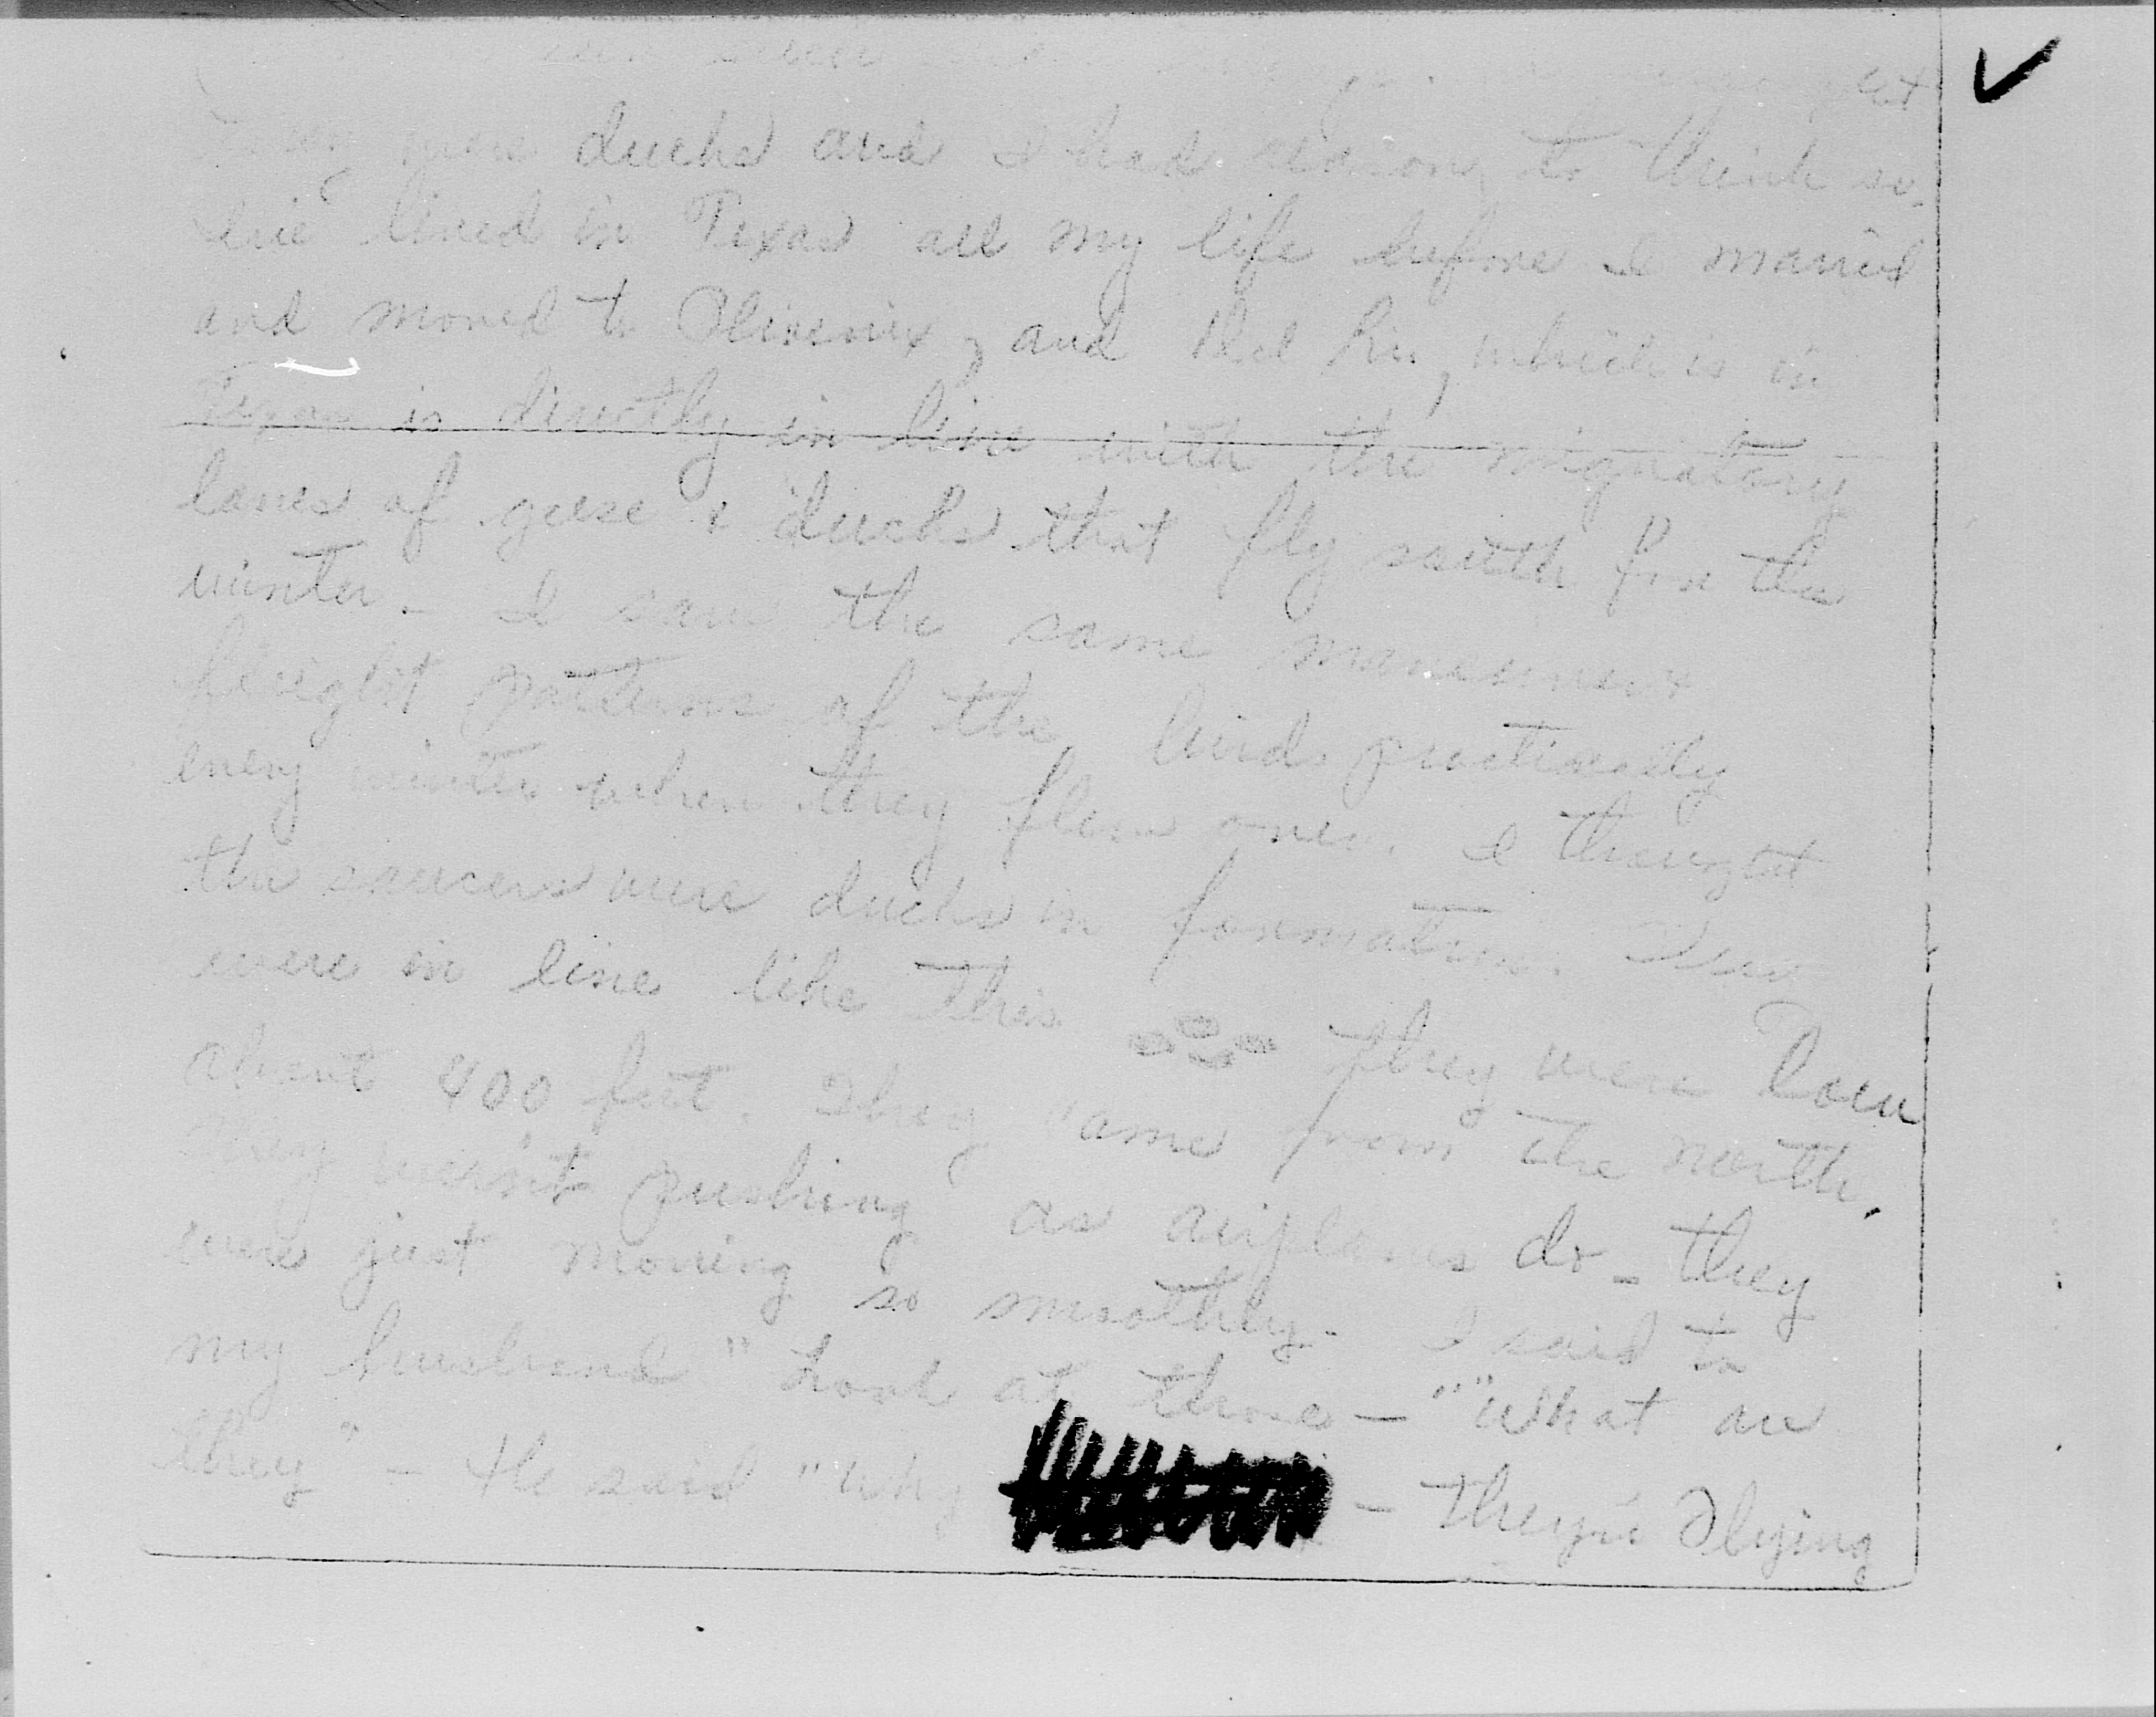 they were ducks and I had reason to think so.
I've lived in Texas all my life before I married
and moved to Phoenix, and Del Rio, which is in
Texas is directly in line with the migratory
lanes of geese & ducks that fly south for the
winter. I saw the same maneuvers
flieght patterns of the birds practically
every winter when they flew over. I thought
the saucers were ducks in formation. They
were in line like this they were low
about 400 feet. They came from the north.
They weren't pushing as airplanes do - they
were just moving so smoothly. I said to
my husband "Look at those — "What are
they" - He said "Why - They're Flying